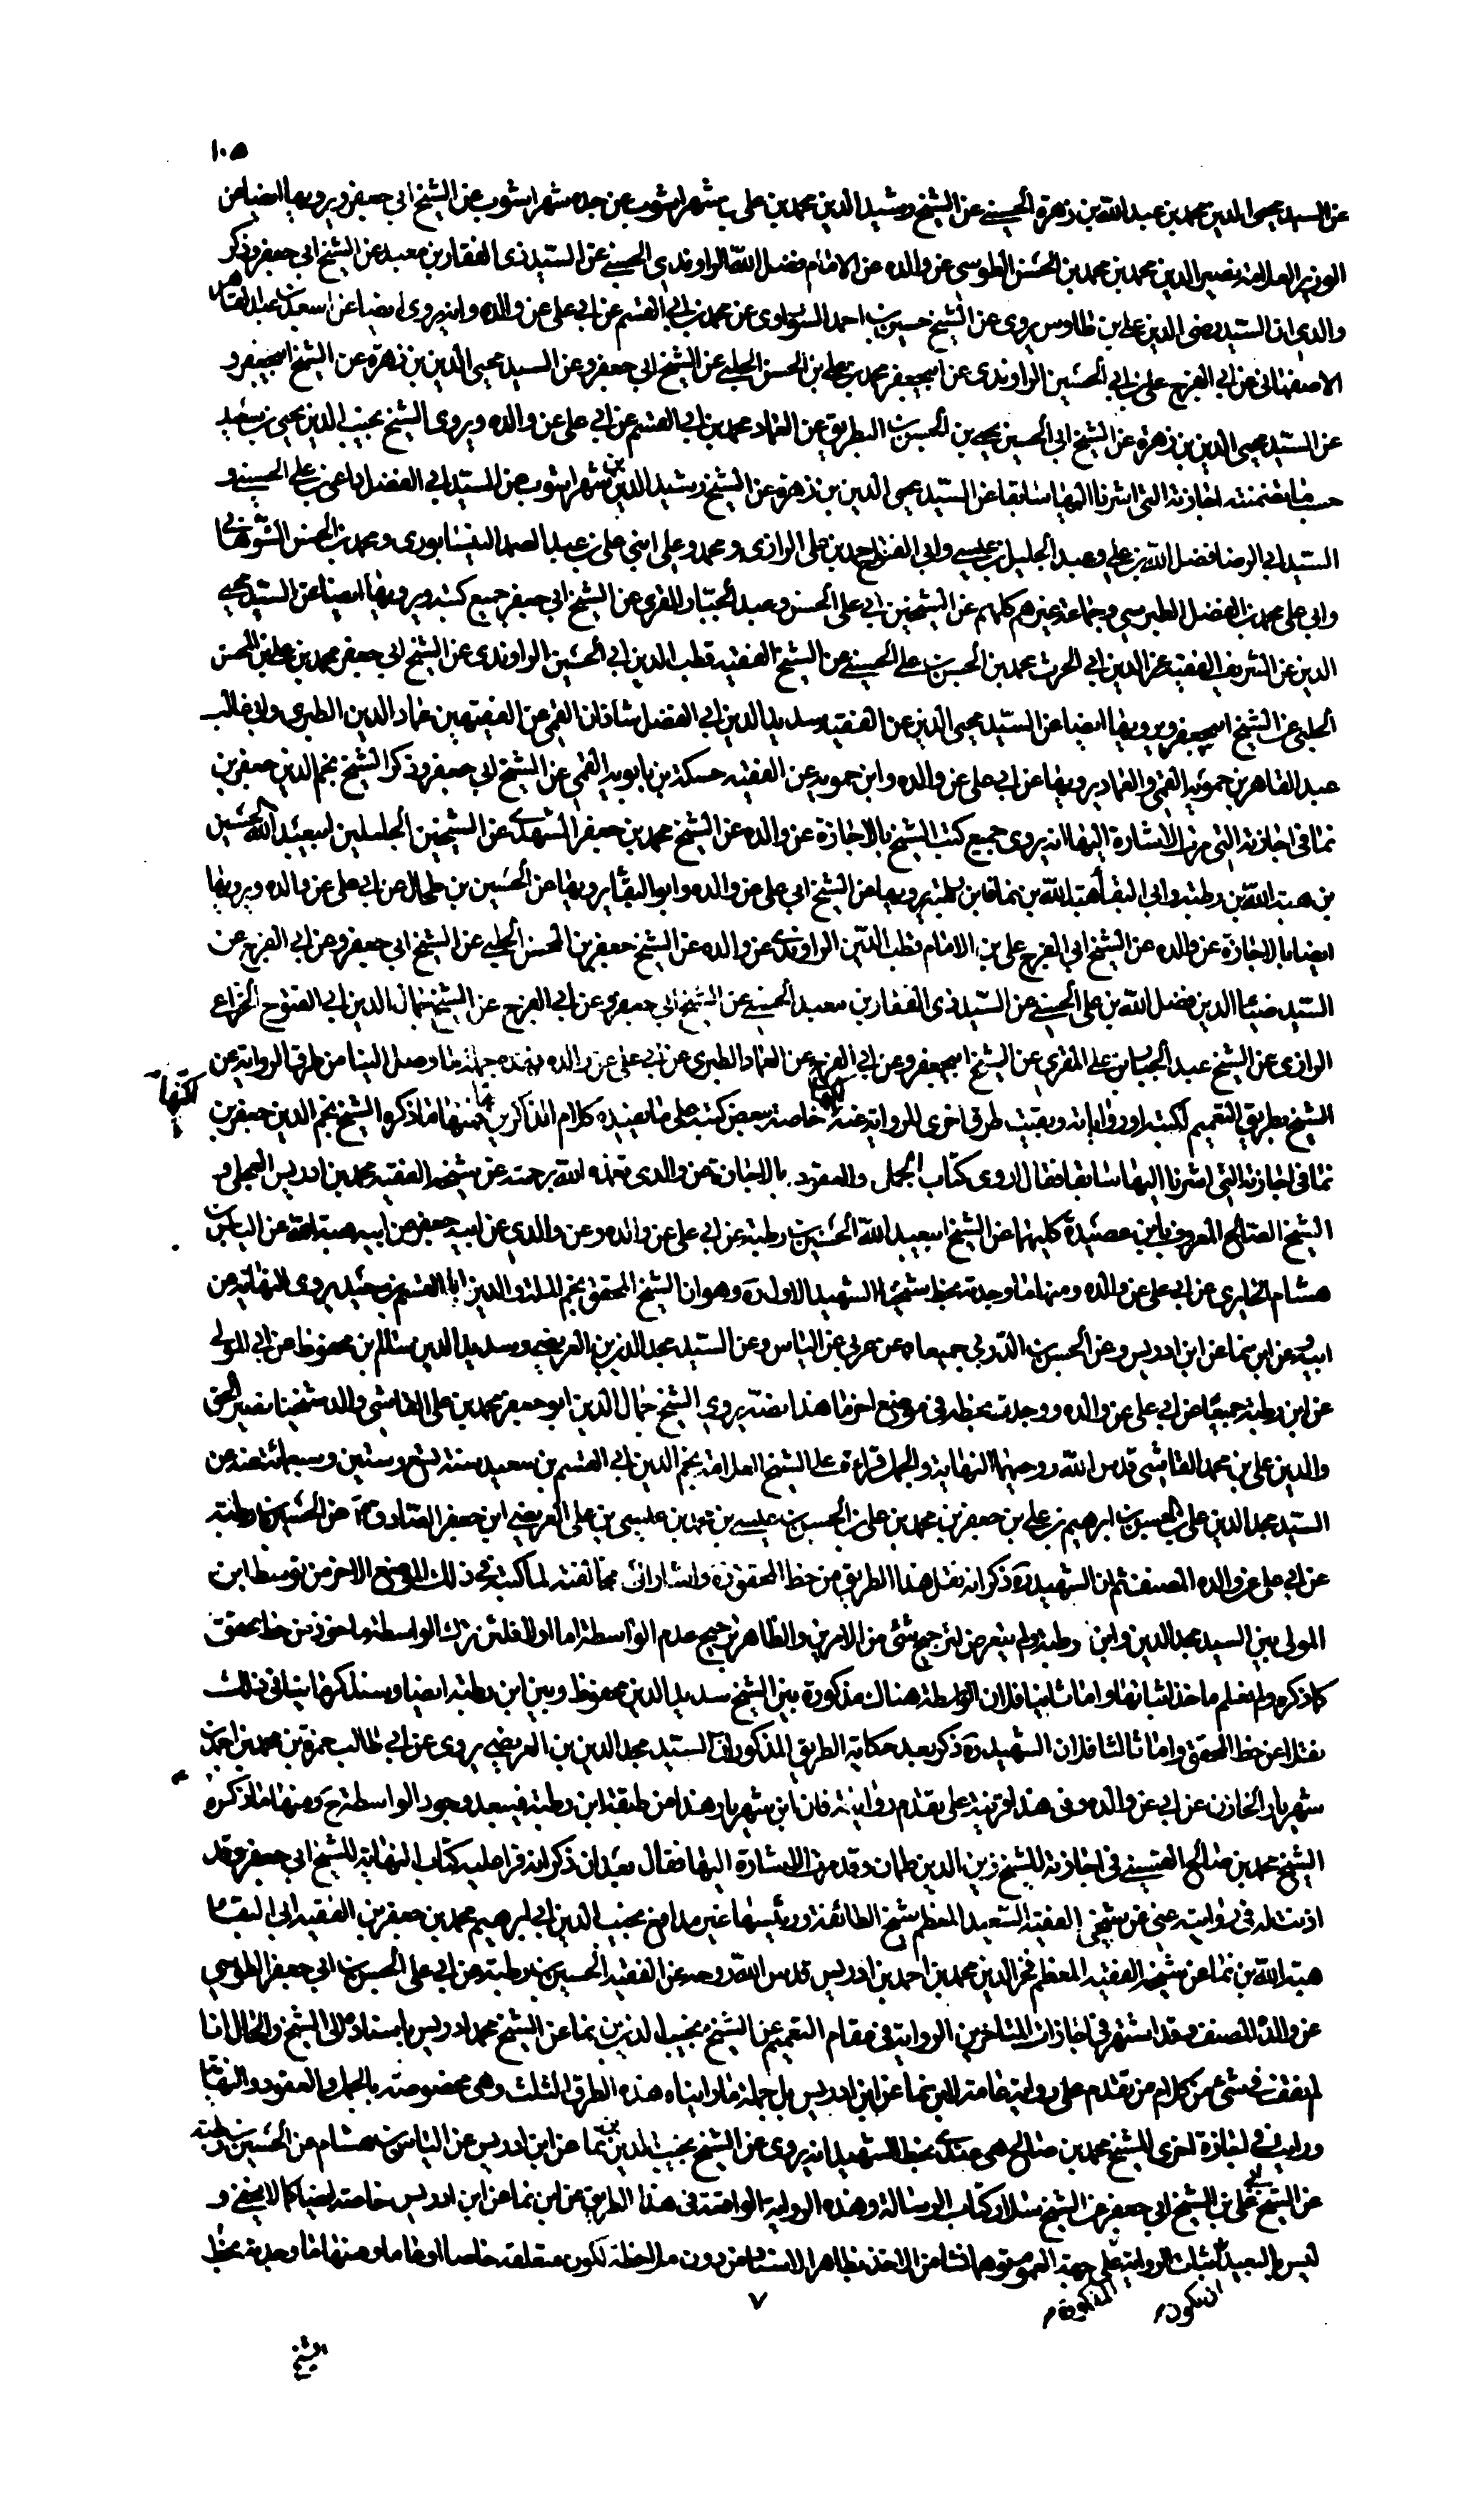 ١٠٥
عن السيد محيى الدين محمد بن عبد الله بن زهرة الحسينى عن الشيخ رشيد الدين محمد بن على بن شهراشوب عن جده شهراشوب عن الشيخ ابي جعفر ويرويها ايضا عن
الوزير العلامة نصير الدين محمد بن محمد بن الحسن الطوسى عن والده عن الامام فضل الله الراوندي الحسينى عن السيد ذى الفقار بن معبد عن الشيخ ابى جعفر وذكر
والدي ان السيد رضى الدين على بن طاوس يروى عن الشيخ حسين بن احمد السوراوى عن محمد بن ابي القسم عن ابي على عن والده وانه يروى ايضا عن اسعد بن عبد القاهر
الاصفهانى عن ابى الفرج على بن ابي الحسين الراوندى عن ابيجعفر محمد بن على بن الحسن الحلبى عن الشيخ ابى جعفر وعن السيد محيى الدين بن زهرة عن الشيخ ابيجعفر و
عن السيد محيى الدين بن زهرة عن الشيخ ابى الحسين يحيى بن الحسن بن البطريق عن العماد محمد بن ابى القسم عن ابى على عن والده ويروى الشيخ نجيب الدين يحيى بن سعيد
حسب ما تضمنته اجازته التى اشرنا اليها سابقا عن السيد محيى الدين بن زهرة عن الشيخ رشيد الدين بن شهراشوب عن السيد ابى الفضل داعى بن على الحسينى و
السيد ابى الرضا فضل الله بن على وعبد الجليل بن عيسى وابى الفتوح احمد بن على الرازى ومحمد وعلى ابنى على بن عبد الصمد النيسابورى ومحمد بن الحسن الشوهانى
وابى على محمد بن الفضل الطبرسى وجماعة غيرهم كلهم عن الشيخين ابى على الحسن وعبد الجبار المقرى عن الشيخ ابى جعفر جميع كتبه ويرويها ايضا عن السيد محيى
الدين عن الشريف الفقيه عز الدين ابى الحرث محمد بن الحسن بن على الحسينى عن الشيخ الفقيه قطب الدين ابى الحسين الراوندى عن الشيخ ابى جعفر محمد بن على بن المحسن
الحلبى عن الشيخ ابيجعفر ويرويها ايضا عن السيد محيى الدين عن الفقيه سديد الدين ابى الفضل شاذان القمى عن الفقيهين عماد الدين الطبرى وابى غالب
عبد القاهر بن حمويه القمى والعماد يرويها عن ابى على عن والده وابن حمويه عن الفقيه حسكة بن بابويه القمى عن الشيخ ابى جعفر وذكر الشيخ نجم الدين جعفر بن
نما فى اجازته التى مرت الاشارة اليها انه يروى جميع كتب الشيخ بالاجازة عن والده عن الشيخ محمد بن جعفر المشهدى عن الشيخين الجليلين ابيعبد الله الحسين
بن هبة الله بن رطبة وابى البقا هبة الله بن نما فابن رطبة يرويها عن الشيخ ابى على عن والده وابو البقا يرويها عن الحسين بن طحال عن ابى على عن والده ويرويها
ايضا بالاجازة عن والده عن الشيخ ابى الفرج على بن الامام قطب الدين الراوندى عن والده عن الشيخ جعفر بن المحسن الحلبى عن الشيخ ابى جعفر وعن ابى الفرج عن
السيد ضياء الدين فضل الله بن على الحسينى عن السيد ذى الفقار بن معبد الحسينى عن الشيخ ابى جعفر وعن ابى الفرج عن الشيخ جمال الدين ابى الفتوح الخزاعى
الرازى عن الشيخ عبد الجبار بن على المقرى عن الشيخ ابيجعفر وعن ابى الفرج عن العماد الطبرى عن ابى على عن والده فهذه جملة ما وصل الينا من طرق الرواية عن
الشيخ بطريق التعميم لكتبه او رواياته وبقيت طرق اخرى للرواية عنه لكنها خاصة ببعض كتبه على ما يفيده كلام الذاكرين لها فمنها ما ذكره الشيخ نجم الدين جعفر بن
نما فى اجازته التى اشرنا اليها سابقا فقال اروى كتاب الجمل والعقود بالاجازة عن والدى تغمده الله برحمته عن شيخه الفقيه محمد بن ادريس العجلى و
الشيخ الصالح المعروف بابن عصيدة كليهما عن الشيخ ابيعبد الله الحسين بن رطبة عن ابى على عن والده وعن والدى عن ابيه جعفر عن ابيه هبة الله عن الياس بن
هشام الحايرى عن ابى على عن والده ومنها ما وجدته بخط شيخنا الشهيد الاول ره وهو ان الشيخ المحقق نجم الملة والدين ابا القسم بن سعيد يروى النهاية عن
ابيه عن ابن نما عن ابن ادريس وعن الحسن بن الدربى جميعا عن عربى عن الياس وعن السيد مجد الدين بن العريضى وسديد الدين سالم بن محفوظ عن ابى المولى
عن ابن رطبة جميعا عن ابى على عن والده ووجدت بخطه فى موضع اخر ما هذا نصه يروى الشيخ جمال الدين ابو جعفر محمد بن على القاشى والد شيخنا نصير الحق
والدين على بن محمد القاشى قدس الله روحيهما النهاية والجمل قراءة على الشيخ العلامة نجم الدين ابى القسم بن سعيد سنة تسع وستين وستمائة عن
السيد مجد الدين على بن الحسن بن ابراهيم بن على بن جعفر بن محمد بن على بن الحسن بن عيسى بن محمد بن عيسى بن على العريضى ابن جعفر الصادق ع عن الحسين بن رطبة
عن ابى على عن والده المصنف ثم ان الشهيد ره ذكر انه نقل هذا الطريق من خط المحقق ره واشار الى مخالفته لما كتبه فى ذلك الموضع الاخر من توسط ابن
المولى بين السيد مجد الدين وابن رطبة ولم يتعرض لترجيح شئ من الامرين والظاهر ترجيح عدم الواسطة اما اولا فلان ترك الواسطة ماخوذ من خط المحقق
كما ذكره ولم يعلم ماخذ اثباتها واما ثانيا فلان الواسطة هناك مذكورة بين الشيخ سديد الدين محفوظ وبين ابن رطبة ايضا وسنذكر ما ينافى ذلك
نقلا عن خط المحقق واما ثالثا فلان الشهيد ره ذكر بعد حكاية الطريق المذكور ان السيد مجد الدين بن العريضى يروى عن ابى طالب حمزة بن محمد بن احمد بن
شهريار الخازن عن ابى على عن والده وفى هذا قرينة على تقدم روايته فان ابن شهريار هذا من طبقة ابن رطبة فيبعد وجود الواسطة ح ومنها ما ذكره
الشيخ محمد بن صالح القسينى فى اجازته للشيخ زين الدين طمان وقد مرت الاشارة اليها فقال بعد ان ذكر انه قرا عليه كتاب النهاية للشيخ ابى جعفر وقد
اذنت له فى روايته عنى عن شيخى الفقيه السعيد المعظم شيخ الطائفة ورئيسها غير مدافع نجيب الدين ابى ابرهيم محمد بن جعفر بن الفقيه ابى البقا
هبة الله بن نما عن شيخه الفقيه المعظم فخر الدين محمد بن احمد بن ادريس قدس الله روحه عن الفقيه الحسين بن رطبة عن ابى على الحسن بن ابى جعفر الطوسى
عن والده المصنف وقد اشتهر فى اجازات المتاخرين الرواية فى مقام التعميم عن الشيخ نجيب الدين بن نما عن الشيخ محمد ادريس باسناده الى الشيخ والحال انا
لم نقف فى شئ من كلام من تقدم على رواية عامة لابن نما عن ابن ادريس بل جملة ما رايناه هذه الطرق الثلث وهى مخصوصة بالجمل والعقود والنهاية
ورايت فى اجازة اخرى للشيخ محمد بن صالح هى عندى بخط الشهيد انه يروى عن الشيخ نجيب الدين بن نما عن ابن ادريس عن الياس بن هشام عن الحسين بن رطبة
عن الشيخ ابى على بن الشيخ ابى جعفر عن الشيخ سلار كتاب الرسالة وهذه الرواية الواقعة فى هذا الطريق عن ابن نما عن ابن ادريس خاصة ايضا كما لا يخفى و
ليس بالبعيد ان يكون اثبات الرواية المذكورة على جهة العموم توهما نشا من الاخذ بظاهر الاسناد من دون ملاحظة لكون متعلقه خاصا او عاما ومنها ما وجدته بخط
٧
الشيخ